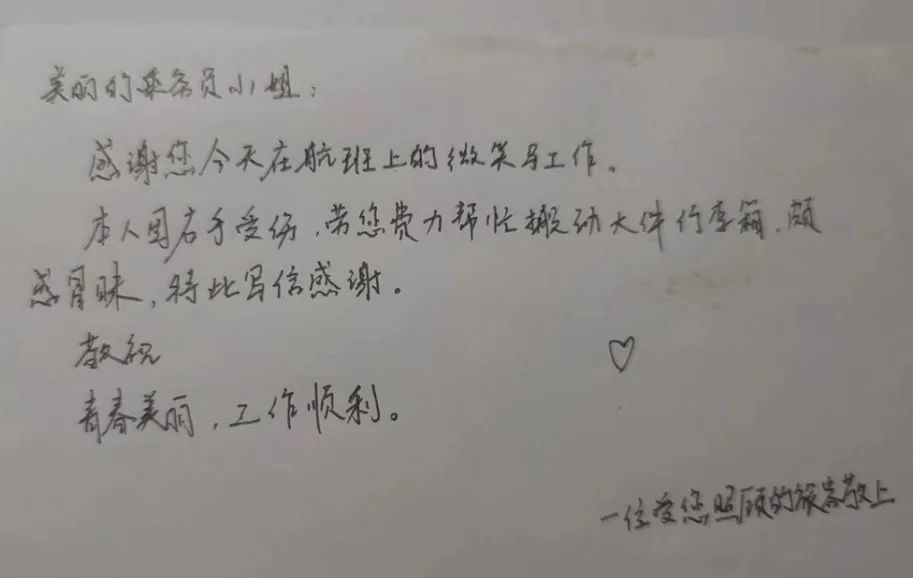 美丽的乘务员小姐：
感谢您今天在航班上的微笑与工作。
本人因右手受伤，劳您费力帮忙搬动大件行李箱，颇
感冒昧，特此写信感谢。
敬祝
青春美丽，工作顺利。
♡
一位受您照顾的旅客敬上